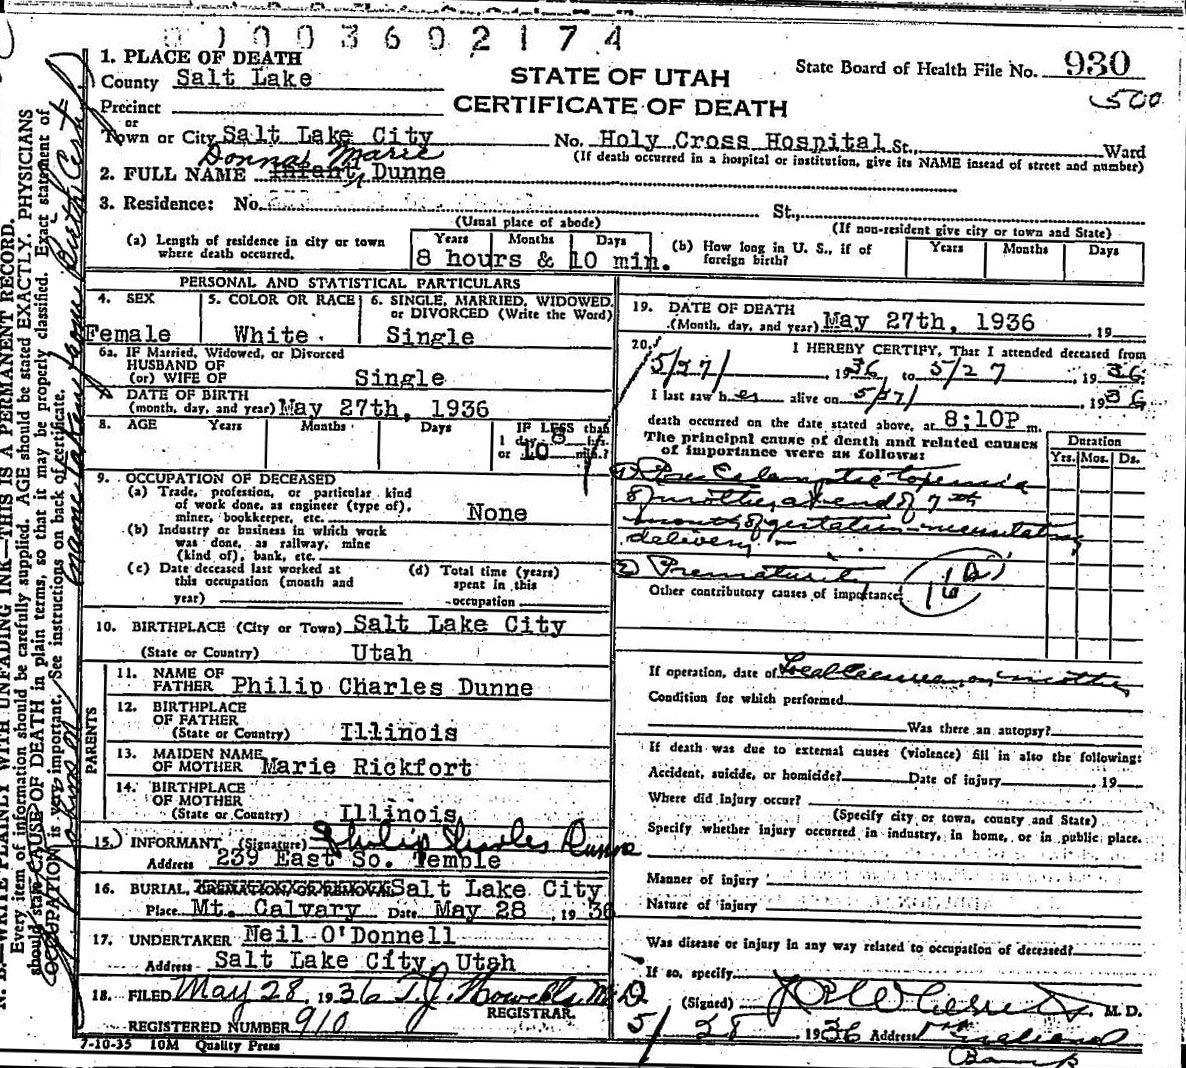 0 0 0 3 6 0 2 1 7 4
1. PLACE OF DEATH
County Salt Lake
Precinct
or
Town or City Salt Lake City
STATE OF UTAH
CERTIFICATE OF DEATH
State Board of Health File No. 930
500
No. Holy Cross Hospital St., Ward
(If death occurred in a hospital or institution, give its NAME insead of street and number)
Donna Marie
2. FULL NAME Infant Dunne
3. Residence: No. St.,
(Usual place of abode)
(If non-resident give city or town and State)
(a) Length of residence in city or town where death occurred.
Years Months Days
8 hours & 10 min.
(b) How long in U. S., if of foreign birth?
Years Months Days
PERSONAL AND STATISTICAL PARTICULARS
4. SEX
Female
5. COLOR OR RACE
White
6. SINGLE, MARRIED, WIDOWED, or DIVORCED (Write the Word)
Single
6a. IF Married, Widowed, or Divorced
HUSBAND OF
(or) WIFE OF Single
7. DATE OF BIRTH
(month, day, and year) May 27th, 1936
8. AGE Years Months Days
IF LESS than
1 day 8 hrs.
or 10 min.?
9. OCCUPATION OF DECEASED
(a) Trade, profession, or particular kind
of work done, as engineer (type of),
miner, bookkeeper, etc. None
(b) Industry or business in which work
was done, as railway, mine
(kind of), bank, etc.
(c) Date deceased last worked at
this occupation (month and
year)
(d) Total time (years)
spent in this
occupation
10. BIRTHPLACE (City or Town) Salt Lake City
(State or Country) Utah
PARENTS
11. NAME OF
FATHER Philip Charles Dunne
12. BIRTHPLACE
OF FATHER
(State or Country) Illinois
13. MAIDEN NAME
OF MOTHER Marie Rickfort
14. BIRTHPLACE
OF MOTHER
(State or Country) Illinois
15. INFORMANT (Signature) Philip Charles Dunne
Address 239 East So. Temple
16. BURIAL, CREMATION, OR REMOVAL Salt Lake City
Place Mt. Calvary Date May 28, 1936
17. UNDERTAKER Neil O'Donnell
Address Salt Lake City, Utah
18. FILED May 28, 1936 T.J. Howells M D
REGISTRAR.
REGISTERED NUMBER 910
7-10-35 10M Quality Press
19. DATE OF DEATH
(Month, day, and year) May 27th, 1936, 19
20. I HEREBY CERTIFY, That I attended deceased from
5/27/, 1936 to 5/27, 1936
I last saw her alive on 5/27/, 1936
death occurred on the date stated above, at 8:10P m.
The principal cause of death and related causes
of importance were as follows:
Duration
Yrs. Mos. Ds.
1) Pre Eclamptic toxemia
of mother at end of 7th
month of gestation necessitating
delivery
2) Prematurity
Other contributory causes of importance:
If operation, date of Local on mother
Condition for which performed
Was there an autopsy?
If death was due to external causes (violence) fill in also the following:
Accident, suicide, or homicide? Date of injury, 19
Where did injury occur?
(Specify city or town, county and State)
Specify whether injury occurred in industry, in home, or in public place.
Manner of injury
Nature of injury
Was disease or injury in any way related to occupation of deceased?
If so, specify
(Signed) M. D.
5/28, 1936 Address
N. B.—WRITE PLAINLY WITH UNFADING INK—THIS IS A PERMANENT RECORD.
Every item of information should be carefully supplied. AGE should be stated EXACTLY. PHYSICIANS
should state CAUSE OF DEATH in plain terms, so that it may be properly classified. Exact statement of
OCCUPATION is very important. See instructions on back of certificate.
name taken from Birth Cert.